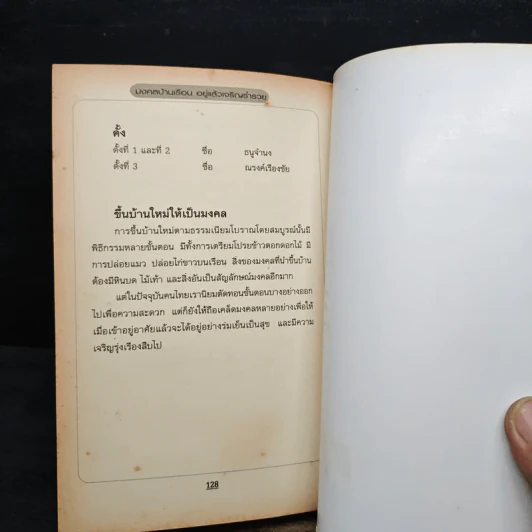 มงคลบ้านเรือน อยู่แล้วเจริญร่ำรวย
ดั้ง
ดั้งที่ 1 และที่ 2 ชื่อ ธนูจำนง
ดั้งที่ 3 ชื่อ ณรงค์เรืองชัย
ขึ้นบ้านใหม่ให้เป็นมงคล
การขึ้นบ้านใหม่ตามธรรมเนียมโบราณโดยสมบูรณ์นั้นมี
พิธีกรรมหลายขั้นตอน มีทั้งการเตรียมโปรยข้าวตอกดอกไม้ มี
การปล่อยแมว ปล่อยไก่ขาวบนเรือน สิ่งของมงคลที่นำขึ้นบ้าน
ต้องมีหินบด ไม้เท้า และสิ่งอันเป็นสัญลักษณ์มงคลอีกมาก
แต่ในปัจจุบันคนไทยเรานิยมตัดทอนขั้นตอนบางอย่างออก
ไปเพื่อความสะดวก แต่ก็ยังให้ถือเคล็ดมงคลหลายอย่างเพื่อให้
เมื่อเข้าอยู่อาศัยแล้วจะได้อยู่อย่างร่มเย็นเป็นสุข และมีความ
เจริญรุ่งเรืองสืบไป
128